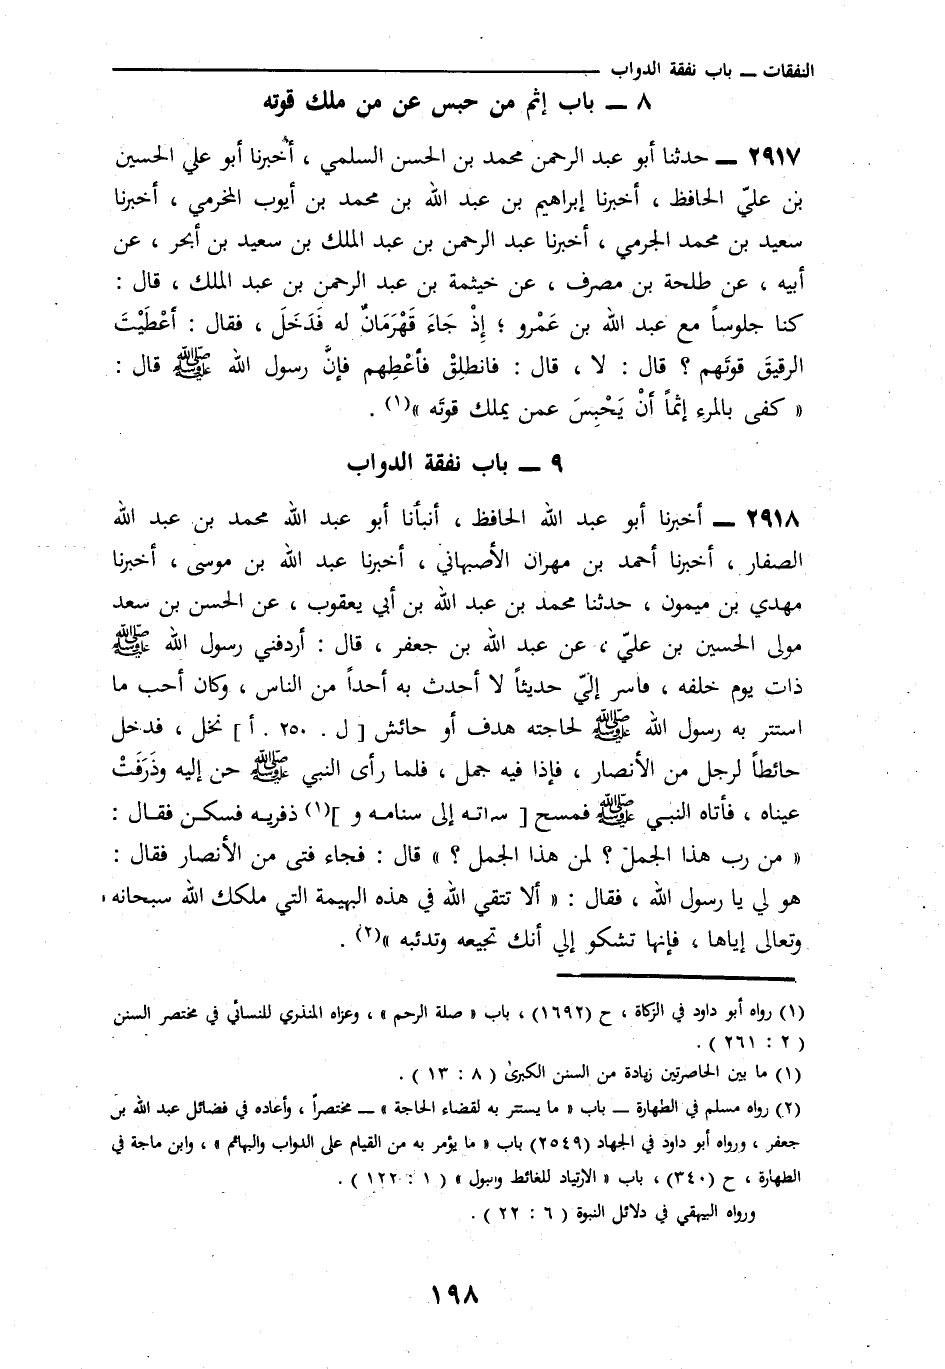 النفقات ــ باب نفقة الدواب
٨ ــ باب إثم من حبس عن من ملك قوته
٢٩١٧ ــ حدثنا أبو عبد الرحمن محمد بن الحسن السلمي ، أخبرنا أبو علي الحسين
بن عليّ الحافظ ، أخبرنا إبراهيم بن عبد الله بن محمد بن أيوب المخرمي ، أخبرنا
سعيد بن محمد الجرمي ، أخبرنا عبد الرحمن بن عبد الملك بن سعيد بن أبحر ، عن
أبيه ، عن طلحة بن مصرف ، عن خيثمة بن عبد الرحمن بن عبد الملك ، قال :
كنا جلوساً مع عبد الله بن عَمْرو ؛ إِذْ جَاءَ قَهْرَمَانٌ له فَدَخَلَ ، فقال : أَعْطَيْتَ
الرقيقَ قوتَهم ؟ قال : لا ، قال : فانطلِقْ فأَعْطِهم فإنَّ رسول الله ﷺ قال :
« كفى بالمرء إثماً أنْ يَحْبِسَ عمن يملك قوتَه »(١) .
٩ ــ باب نفقة الدواب
٢٩١٨ ــ أخبرنا أبو عبد الله الحافظ ، أنبأنا أبو عبد الله محمد بن عبد الله
الصفار ، أخبرنا أحمد بن مهران الأصبهاني ، أخبرنا عبد الله بن موسى ، أخبرنا
مهدي بن ميمون ، حدثنا محمد بن عبد الله بن أبي يعقوب ، عن الحسن بن سعد
مولى الحسين بن عليّ ، عن عبد الله بن جعفر ، قال : أردفني رسول الله ﷺ
ذات يوم خلفه ، فأسر إليّ حديثاً لا أحدث به أحداً من الناس ، وكان أحب ما
استتر به رسول الله ﷺ لحاجته هدف أو حائش [ ل . ٢٥٠ . أ ] نخل ، فدخل
حائطاً لرجل من الأنصار ، فإذا فيه جمل ، فلما رأى النبي ﷺ حن إليه وذَرَفَتْ
عيناه ، فأتاه النبي ﷺ فمسح [ سراته إلى سنامه و ](١) ذفريه فسكن فقال :
« من رب هذا الجمل ؟ لمن هذا الجمل ؟ » قال : فجاء فتى من الأنصار فقال :
هو لي يا رسول الله ، فقال : « ألا تتقي الله في هذه البهيمة التي ملكك الله سبحانه
وتعالى إياها ، فإنها تشكو إلي أنك تجيعه وتدئبه »(٢) .
(١) رواه أبو داود في الزكاة ، ح (١٦٩٢) ، باب « صلة الرحم » ، وعزاه المنذري للنسائي في مختصر السنن
( ٢ : ٢٦١ ) .
(١) ما بين الحاصرتين زيادة من السنن الكبرىٰ ( ٨ : ١٣ ) .
(٢) رواه مسلم في الطهارة ــ باب « ما يستتر به لقضاء الحاجة » ــ مختصراً ، وأعاده في فضائل عبد الله بن
جعفر ، ورواه أبو داود في الجهاد (٢٥٤٩) باب « ما يؤمر به من القيام على الدواب والبهائم » ، وابن ماجة في
الطهارة ، ح (٣٤٠) ، باب « الارتياد للغائط والبول » ( ١ : ١٢٢ ) .
ورواه البيهقي في دلائل النبوة ( ٦ : ٢٢ ) .
١٩٨